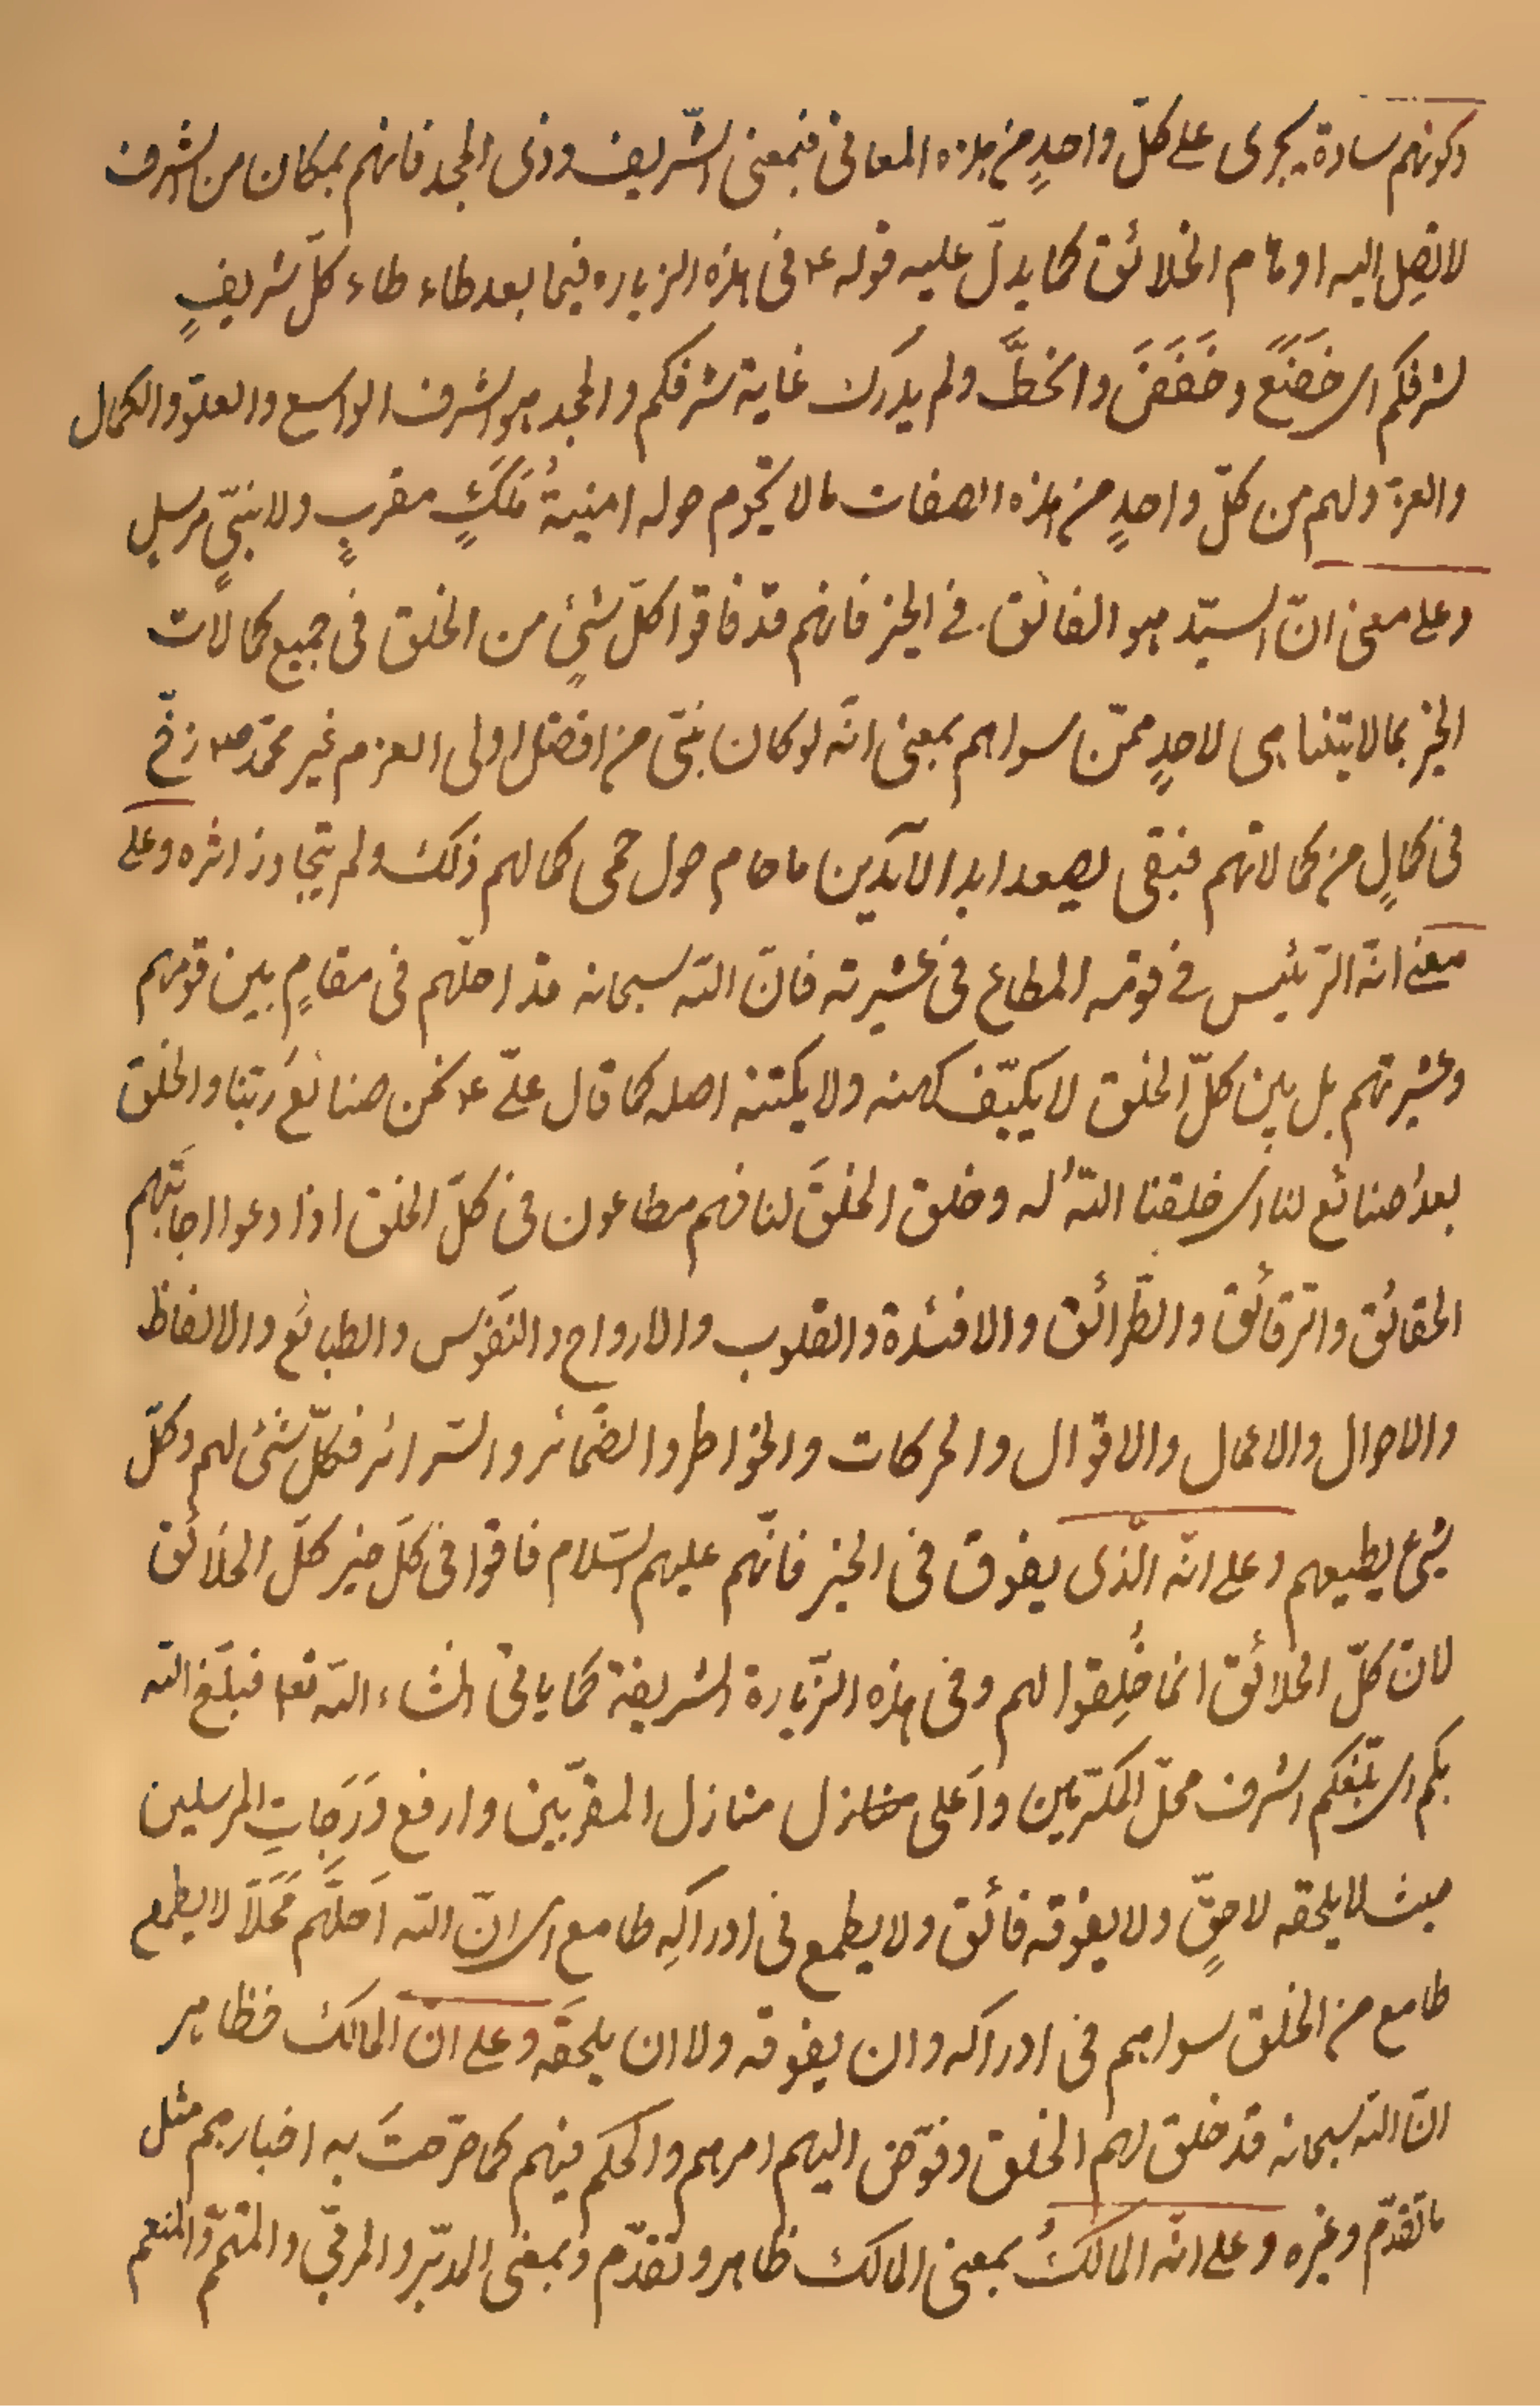 وكونهم سادة يجرى على كلّ واحدٍ من هذه المعانى فبمعنى الشّريف وذى المجد فانهم بمكان من الشرف
لا تصل اليه اوهام الخلائق كما يدلّ عليه قوله ع فى هذه الزياره فيما بعد طاء طاء كلّ شريفٍ
لشرفكم اى خَضَعَ وخَفَضَ وانحَطَّ ولم يدرك غاية شرفكم والمجد هو الشرف الواسع والعلوّ والكمال
والعزة ولهم من كلّ واحدٍ من هذه الصفات ما لا يحوم حوله امنيةُ مَلَكٍ مقربٍ ولا نبىّ مرسلٍ
وعلى معنى انّ السيّد هو الفائق فى الخير فانهم قد فاقوا كلّ شئٍ من الخلق فى جميع كمالات
الخير بما لا يتناهى لاحدٍ ممّن سواهم بمعنى انّه لو كان نبىّ من افضل اولى العزم غير محمّد ص زخّ
فى كمالٍ من كمالاتهم فبقى يصعد ابد الآبدين ما حام حول حمى كمالهم ذلك ولم يتجاوز اثره وعلى
معنى انّه الرّئيس فى قومه المطاع فى عشيرته فانّ اللّه سبحانه قد احلّهم فى مقامٍ بين قومهم
وعشيرتهم بل بين كلّ الخلق لا يكيّف كهنه ولا يكتنه اصله كما قال علىّ ع نحن صنائعُ ربّنا والخلق
بعدُ صنائع لنا اى خلقنا اللّهُ له وخلق الخلقَ لنا فهم مطاعون فى كلّ الخلق اذا دعوا اجابتهم
الحقائق والرّقائق والطّرائق والافئدة والقلوب والارواح والنفوس والطبائع والالفاظ
والاحوال والاعمال والاقوال والحركات والخواطر والضمائر والسّرائر فكلّ شئ لهم وكلّ
شئ يطيعهم وعلى انّه الّذى يفوق فى الخير فانّهم عليهم السّلام فاقوا فى كلّ خير كلّ الخلائق
لانّ كلّ الخلائق انما خُلِقوا لهم وفى هذه الزّيارة الشريفة كما ياتى انشاء اللّه تعا فبلّغ اللّه
بكم اى بلّغكم اشرف محلّ المكرّمين واَعلى منازل منازل المقرّبين وارفع دَرَجاتِ المرسلين
حيث لا يلحقه لاحقٌ ولا يفوقه فائق ولا يطمع فى ادراكِه طامع اى انّ اللّه اَحلّهم مَحَلّاً لا يطمع
طامع من الخلق سواهم فى ادراكه وان يفوقه ولا ان يلحقَه وعلى انّ المالك فظاهر
انّ اللّه سبحانه قد خلق لهم الخلق وفوّض اليهم امرهم والحكم فيهم كما صرّحت به اخبارهم مثل
ما تقدّم وغيره وعلى انّه المالكُ بمعنى المالك ظاهر وتقدّم وبمعنى المدبّر والمربّى والمتمّم والمنعم